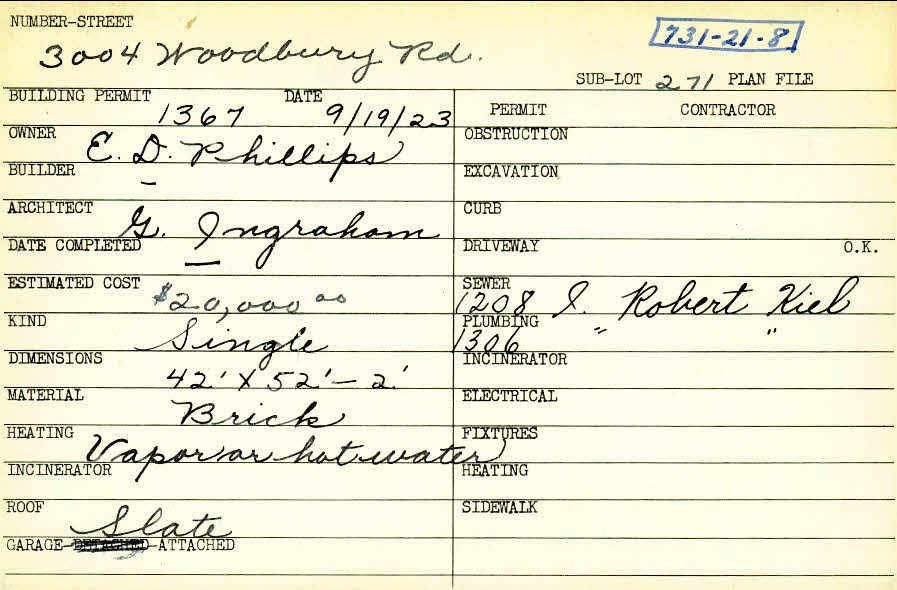 NUMBER-STREET
3004 Woodbury Rd.
731-21-8
SUB-LOT 271 PLAN FILE
BUILDING PERMIT 1367 DATE 9/19/23
PERMIT CONTRACTOR
OWNER E. D. Phillips
OBSTRUCTION
BUILDER –
EXCAVATION
ARCHITECT G. Ingraham
CURB
DATE COMPLETED —
DRIVEWAY O.K.
ESTIMATED COST $20,000 00
SEWER 1208 I. Robert Kiel
KIND Single
PLUMBING 1306 " "
DIMENSIONS 42' X 52' - 2'
INCINERATOR
MATERIAL Brick
ELECTRICAL
HEATING Vapor or hot water
FIXTURES
INCINERATOR
HEATING
ROOF Slate
SIDEWALK
GARAGE-DETACHED-ATTACHED